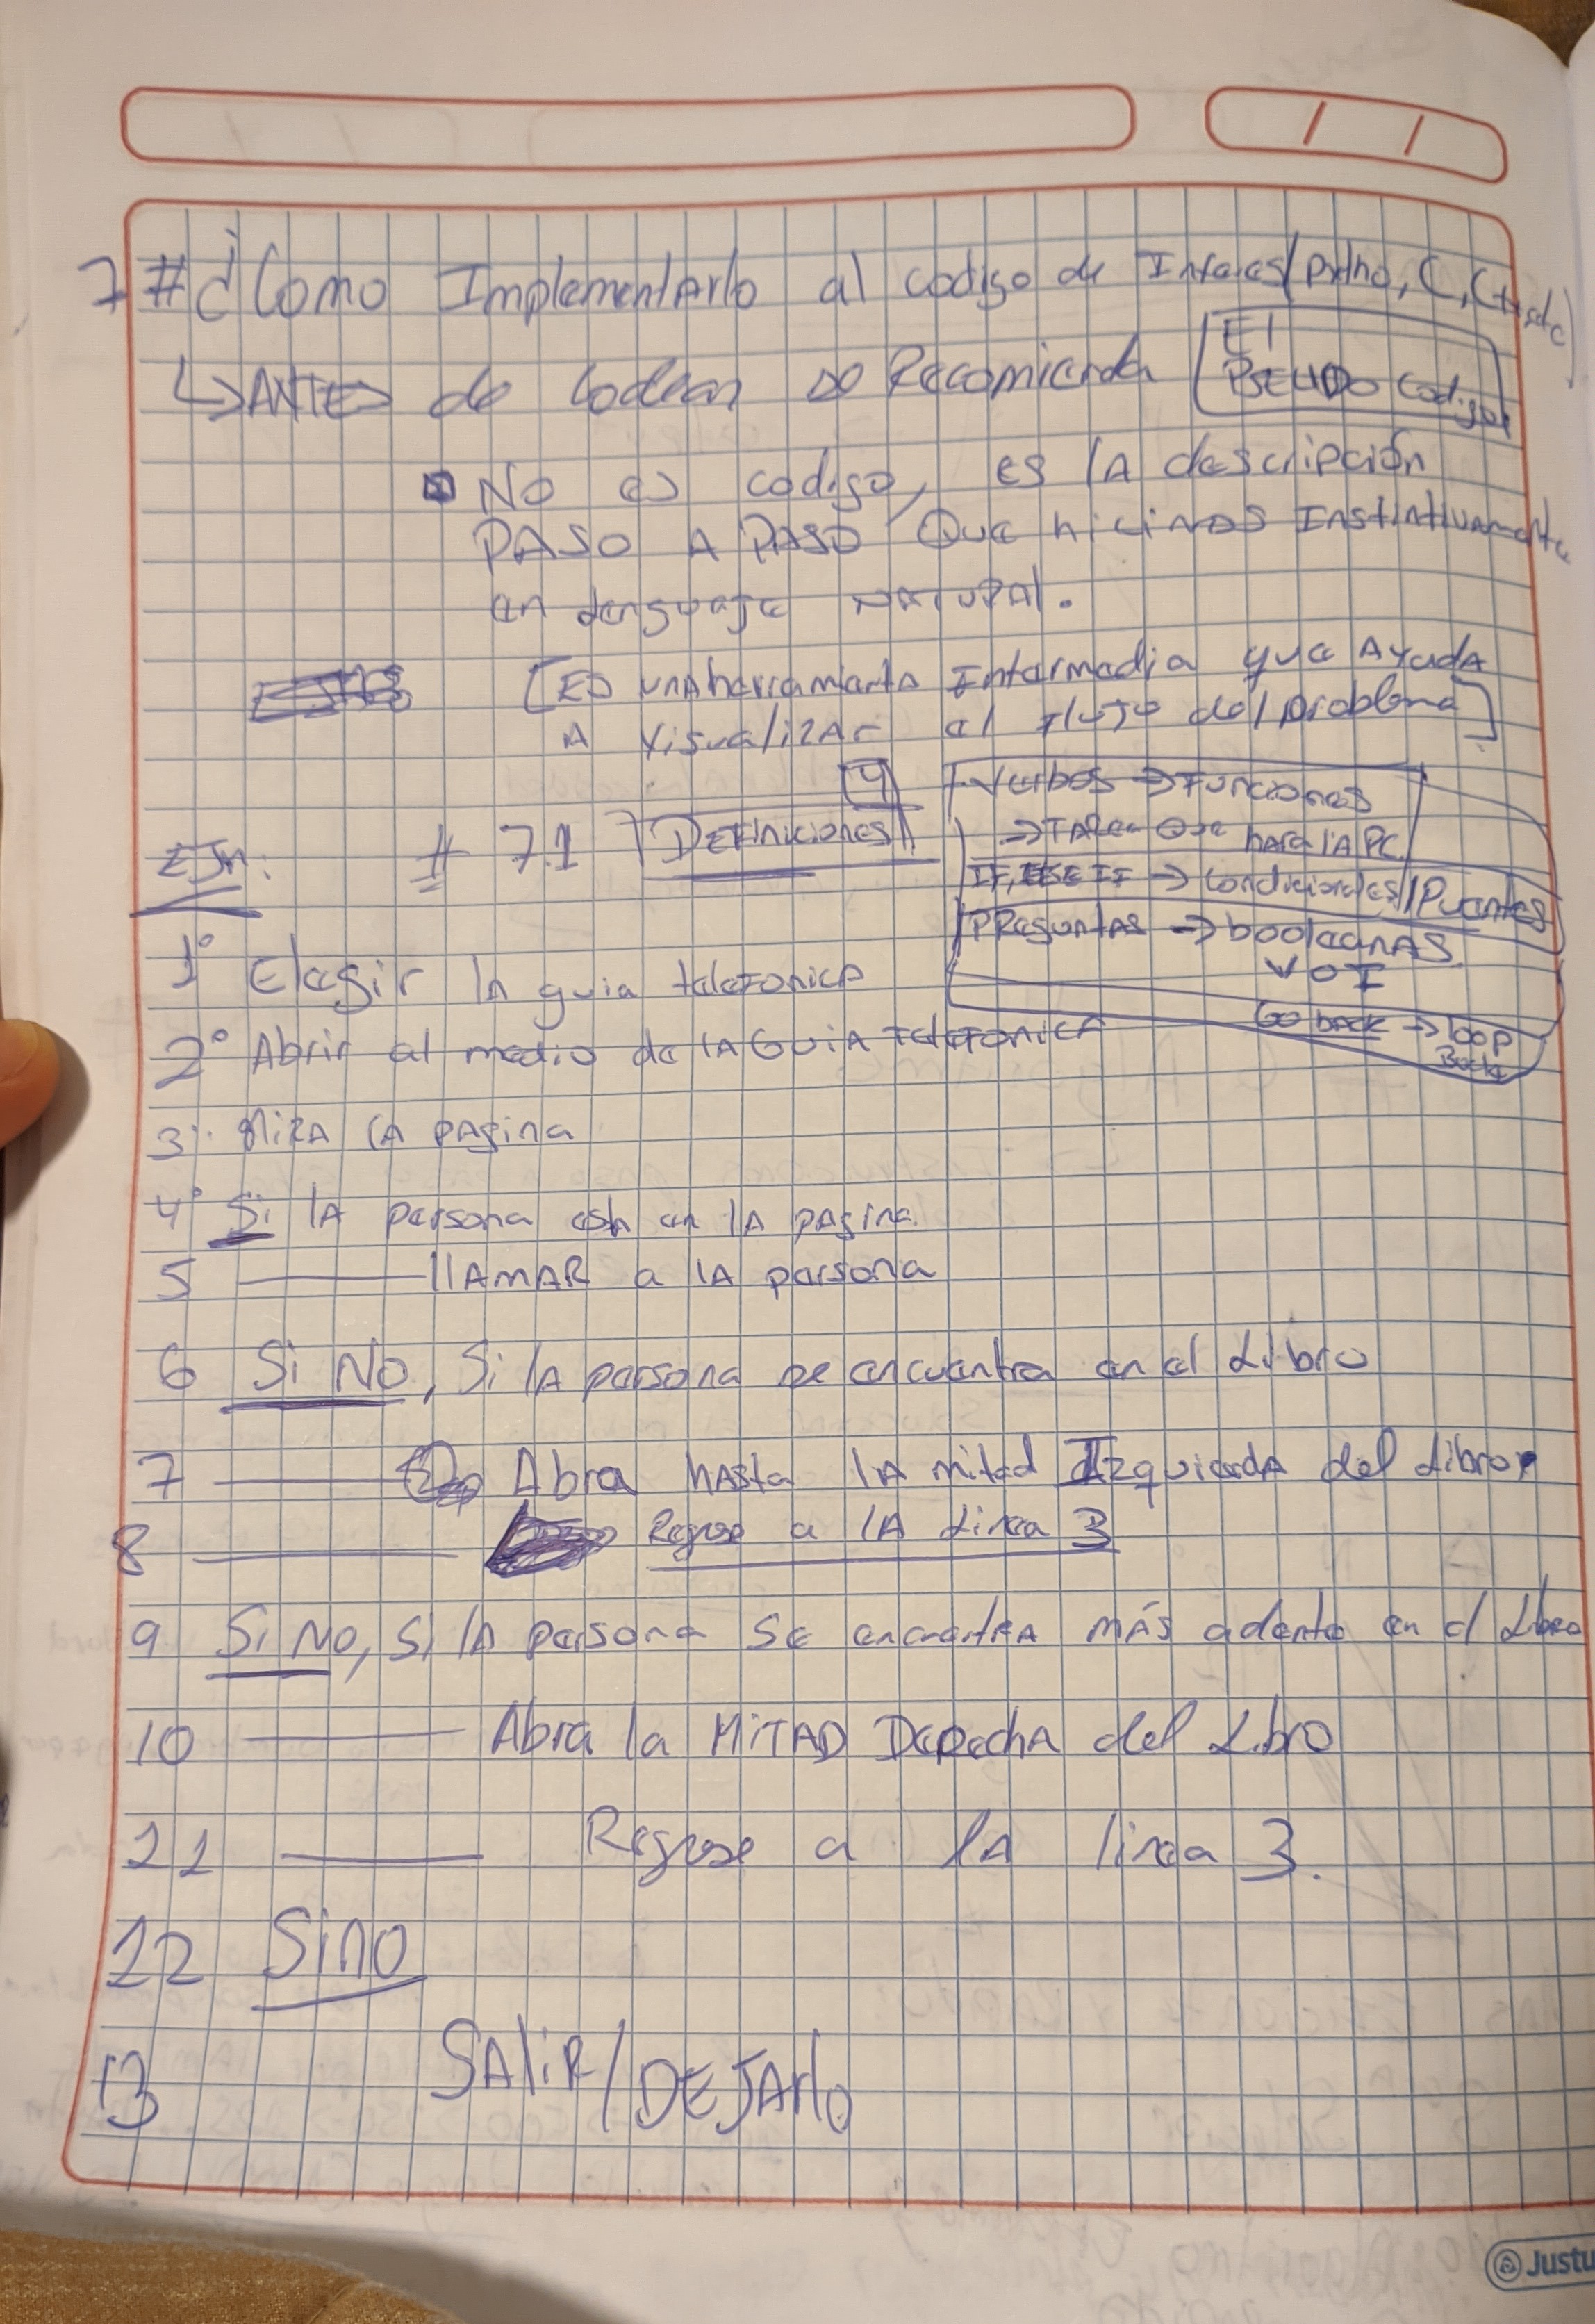 7 # ¿Como Implementarlo al codigo de Interes/Pytho, C, C++, etc)
↳ ANTES de codear se Recomienda [El
PSEUDO Codigo]
▪ No es codigo, es la descripción
PASO A PASO Que hicimos Instintivamente
en lenguaje NATURAL.
[ES una herramienta Intermedia que AYUDA
A Visualizar el flujo del problema]
EJM: # 7.1 DEFiniciones 4
Verbos → Funciones
→ TAREA Que hara lA PC
IF, ELSE IF → condicionales//Puentes
PREguntas → booleanas
V O F
Go back → loop
Back
1° Elegir la guia telefonica
2° Abrir al medio de lA GuiA telefonica
3°. Mira la pagina
4° Si lA persona esta en lA pagina.
5 llAMAR a lA persona
6 Si No, Si lA persona se encuentra en el Libro
7 Abra hasta lA mitad Izquierda del Libro
8 Regrese a lA linea 3
9 Si No, si lA persona se encuentra más adelante en el Libro
10 Abra la MITAD Derecha del Libro
11 Regrese a lA linea 3.
12 Sino
13 SAliR/DEJARlo
Justu